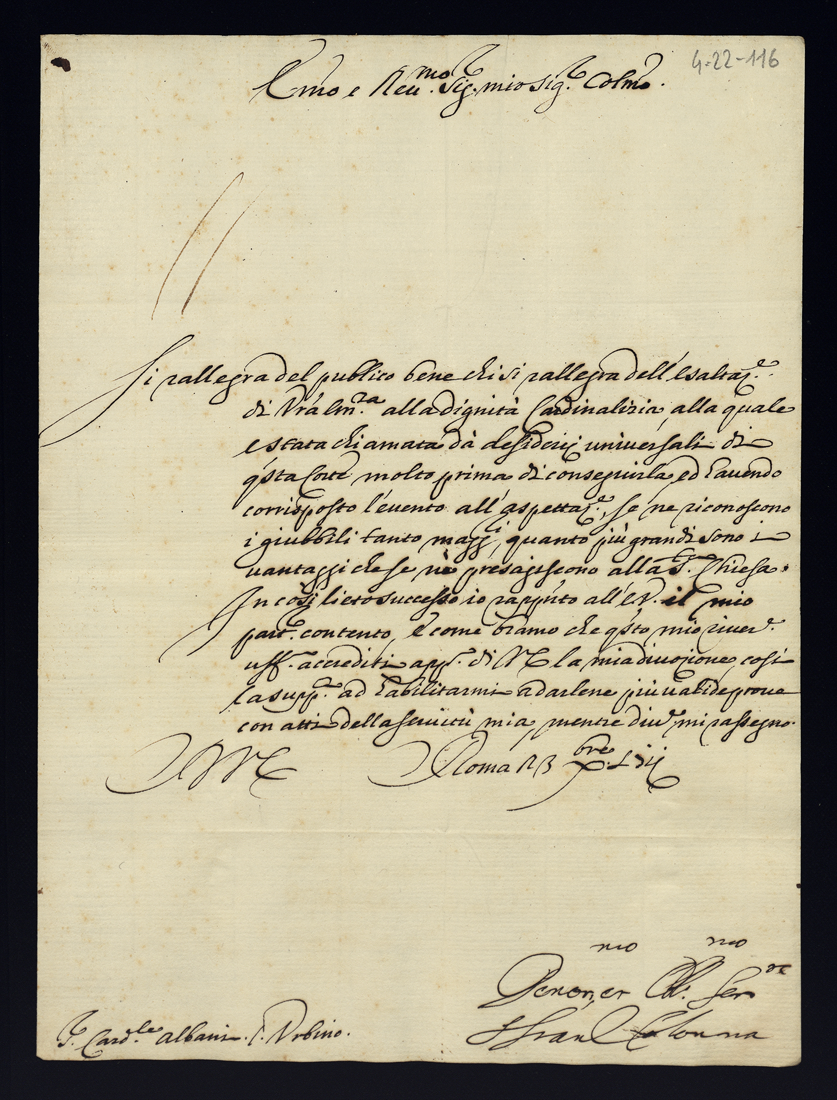 4-22-116
Em̃o e Reu.mo Sig.r mio Sig.r Colm̃o.
Si rallegra del publico bene chi si rallegra dell'esaltaz.e
di Vrã Em.za alla dignità Cardinalizia, alla quale
è stata chiamata dà desiderij universali di
q̃sta Corte molto prima di conseguirla, ed havendo
corrisposto l'evento all'aspettaz.e, se ne riconoscono
i giubbili tanto magg.i, quanto più grandi sono i
vantaggi che se nè presagiscono alla S.ta Chiesa.
In così lieto successo io rapp̃nto all'E.V. il mio
part.e contento, e come bramo che q̃sto mio river.e
uff.o accrediti app.o di V.E. la mia divozione, così
la supp.o ad habilitarmi a darlene più valide prove
con atti della servitù mia, mentre div.e mi rassegno.
D.V.E. Roma 23 Xbre
Deuo.mo et Obl.mo Ser.re
Fran.o Colonna
S.r Card.le Albani. Urbino.